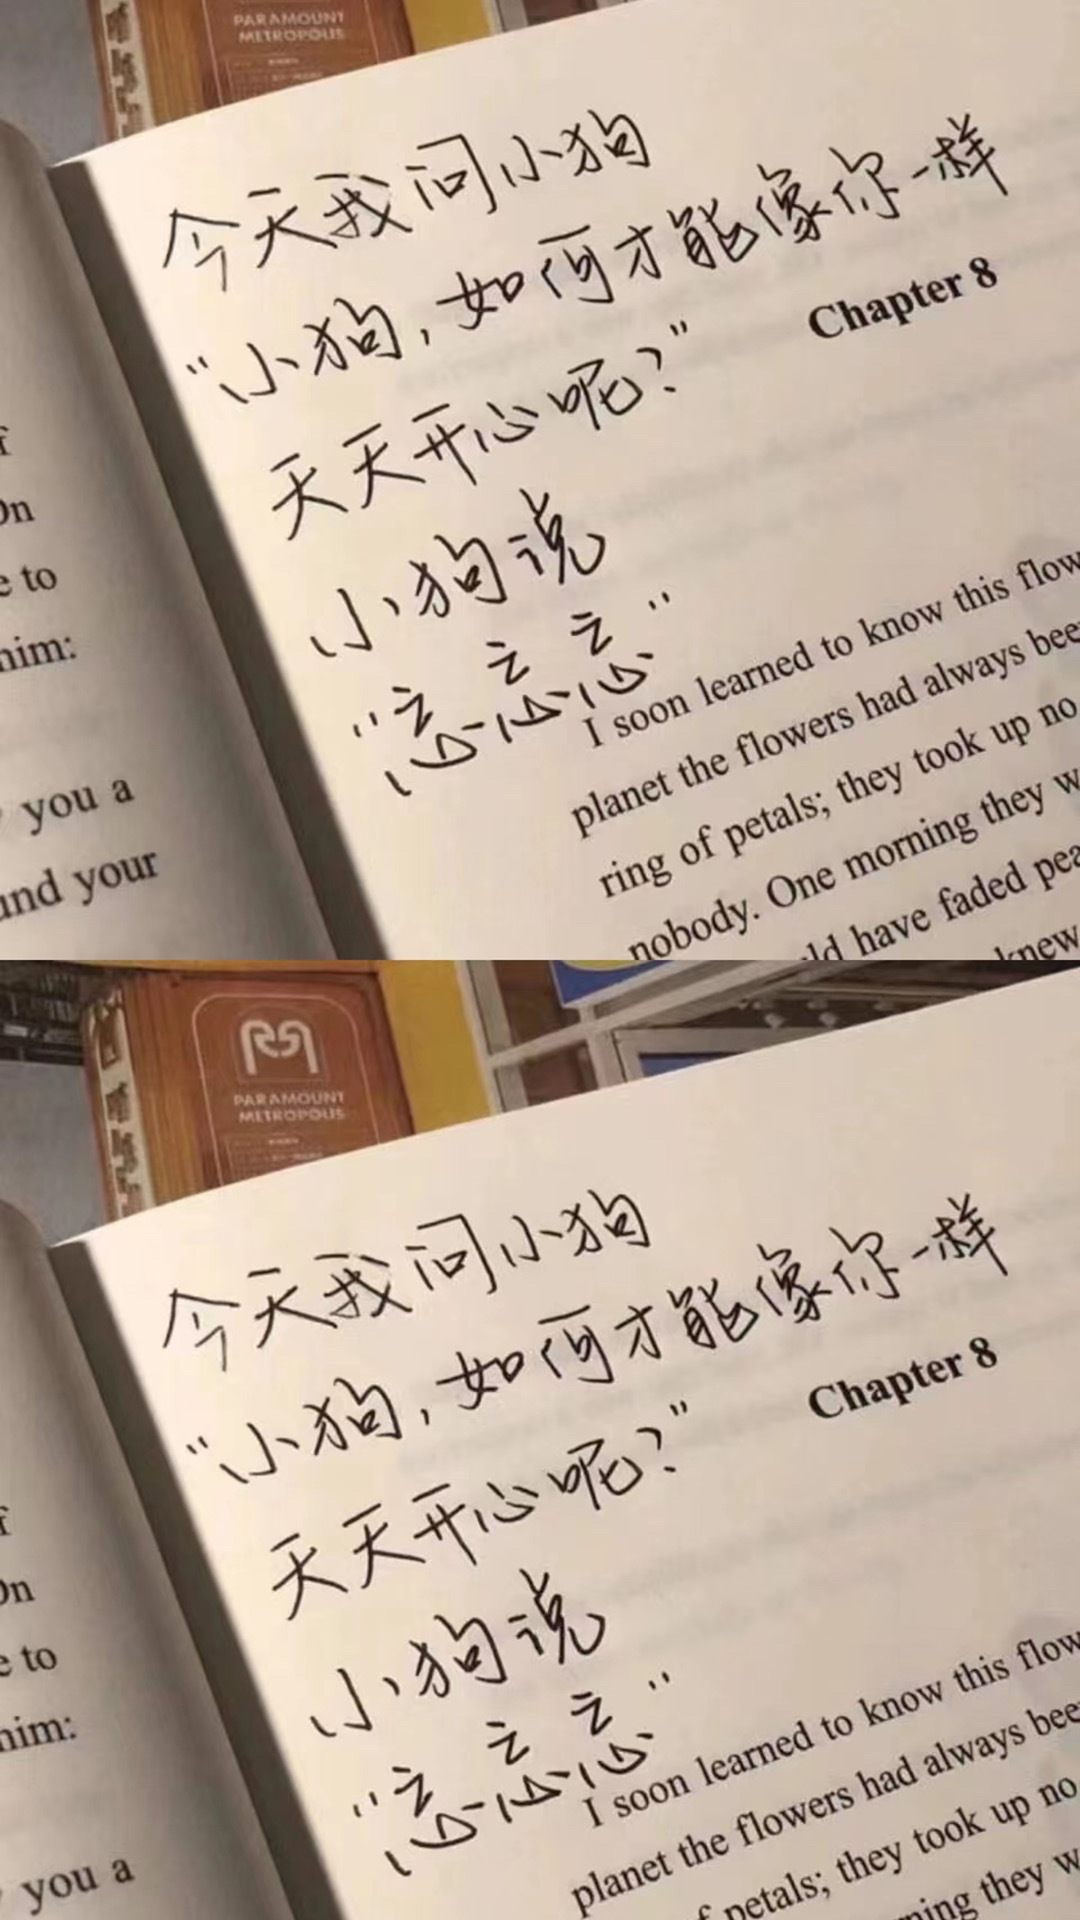 PARAMOUNT
METROPOLIS
今天我问小狗
“小狗,如何才能像你一样
天天开心呢?”
小狗说
Chapter 8
I soon learned to know this flow
planet the flowers had always bee
ring of petals; they took up no
nobody. One morning they w
have faded
knew
f
On
e to
him:
you a
and your
PARAMOUNT
METROPOLIS
今天我问小狗
“小狗,如何才能像你一样
天天开心呢?”
小狗说
Chapter 8
I soon learned to know this flow
planet the flowers had always bee
f petals; they took up no
ning they w
f
On
e to
him:
you a